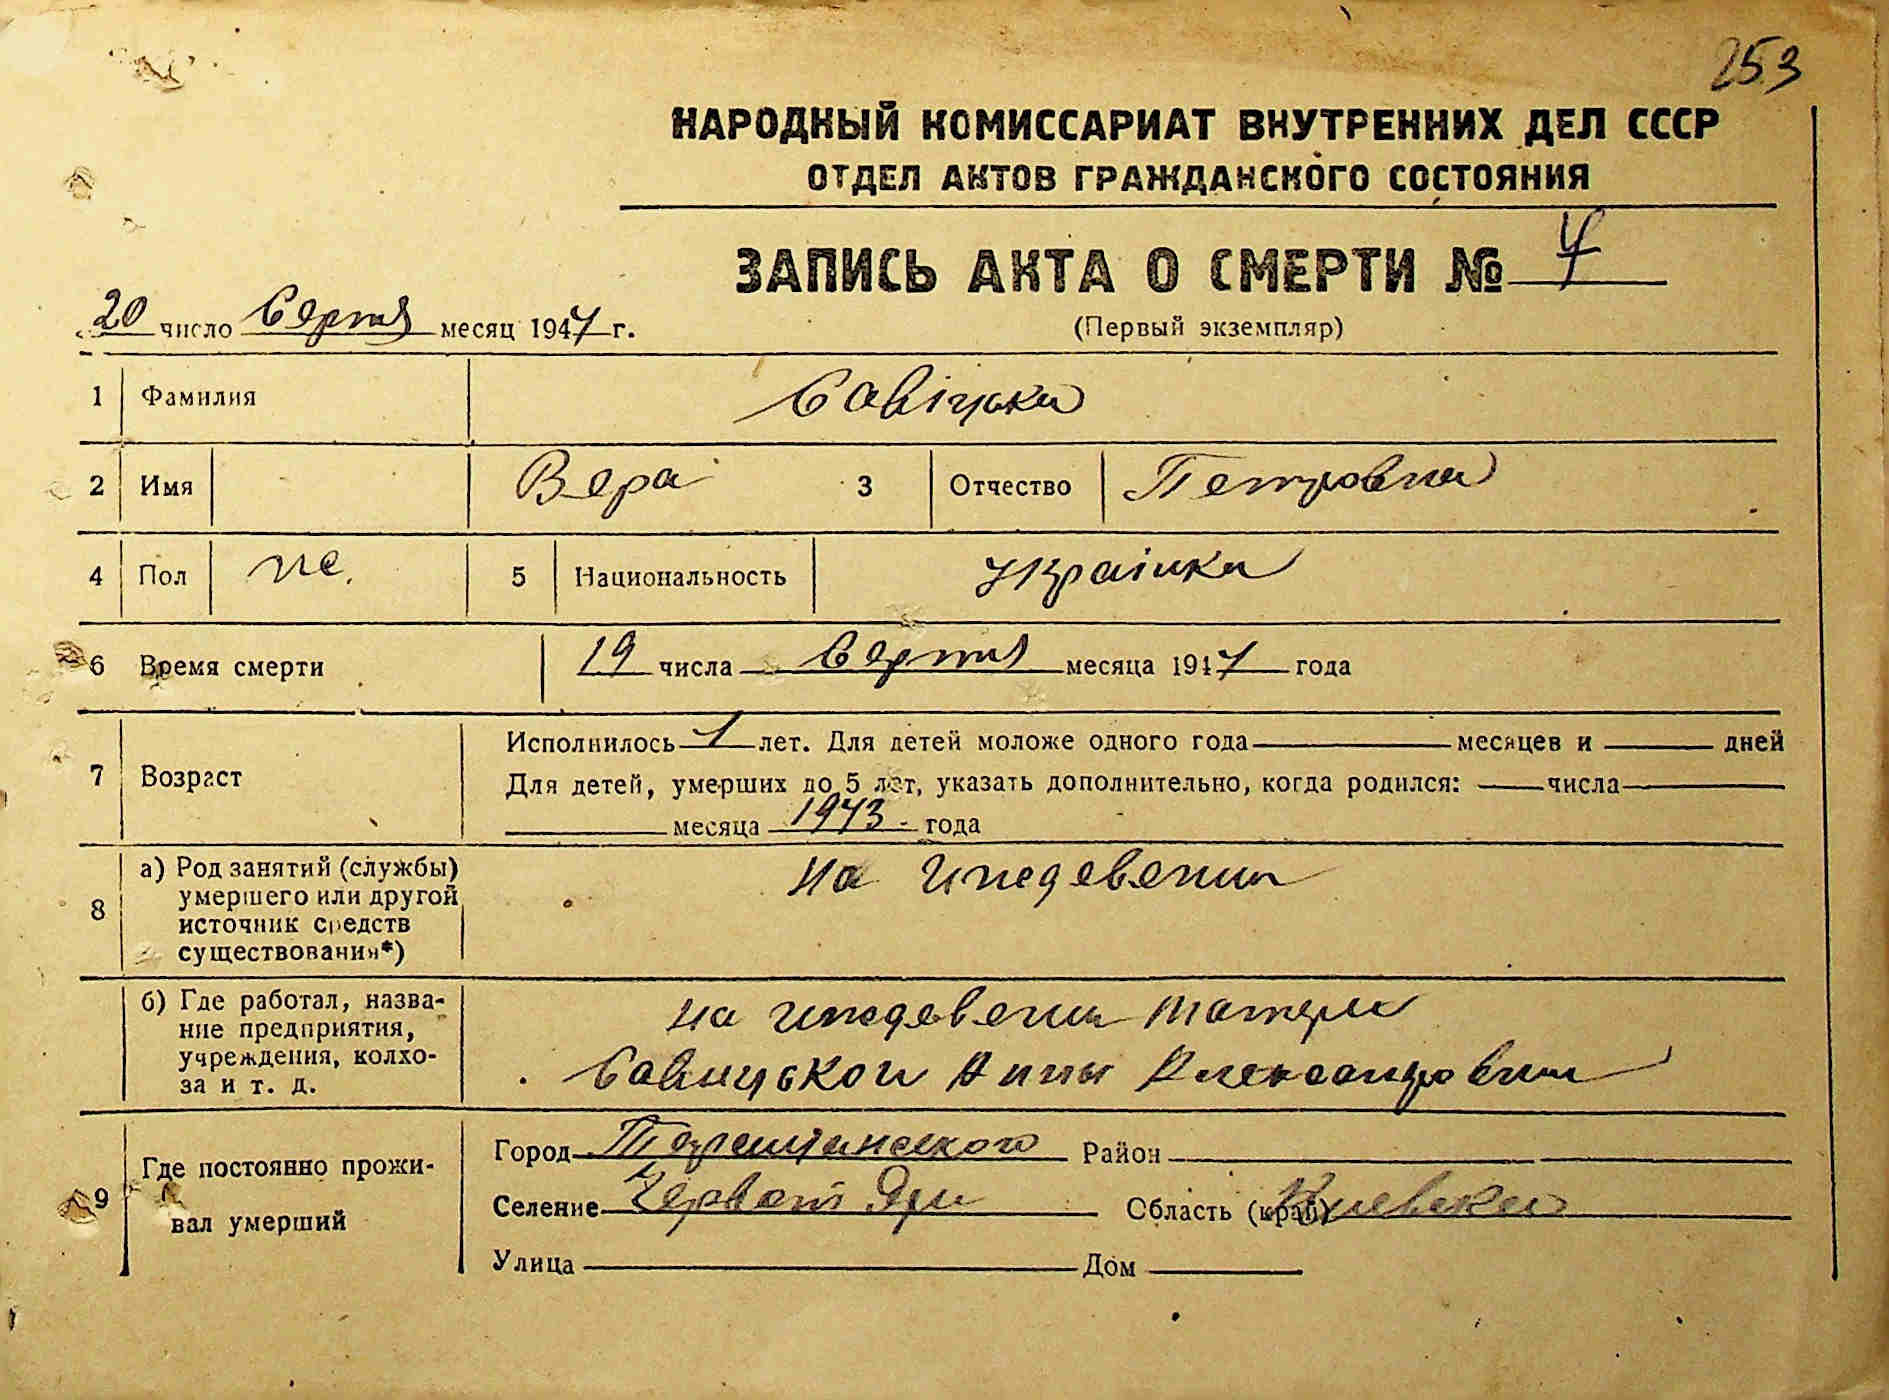 253
НАРОДНЫЙ КОМИССАРИАТ ВНУТРЕННИХ ДЕЛ СССР
ОТДЕЛ АКТОВ ГРАЖДАНСКОГО СОСТОЯНИЯ
ЗАПИСЬ АКТА О СМЕРТИ №
20 число Серпня месяц 1944 г.
(Первый экземпляр)
1 Фамилия Савіцька
2 Имя Вера 3 Отчество Петровна
4 Пол 5 Национальность Українка
6 Время смерти 19 числа Серпня месяца 1944 года
7 Возраст
Исполнилось 1 лет. Для детей моложе одного года месяцев и дней
Для детей, умерших до 5 лет, указать дополнительно, когда родился: числа
месяца 1943 года
8 а) Род занятий (службы) умершего или другой источник средств существования*) На иждевении
б) Где работал, название предприятия, учреждения, колхоза и т. д.
на иждевении матери
Савицькои Анны Александровни
9 Где постоянно проживал умерший
Город Таращанского Район
Селение Область (край) Киевска
Улица Дом